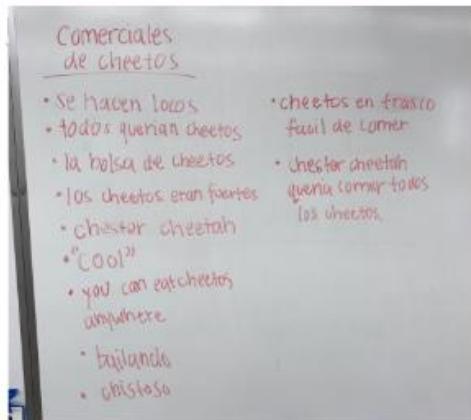 Comerciales
de cheetos
• se hacen locos
• todos querian cheetos
• la bolsa de cheetos
• los cheetos eran fuertes
• chester cheetah
• "cool"
• you can eat cheetos
anywhere
• bailando
• chistoso
• cheetos en frasco
facil de comer
• chester cheetah
queria comer todos
los cheetos